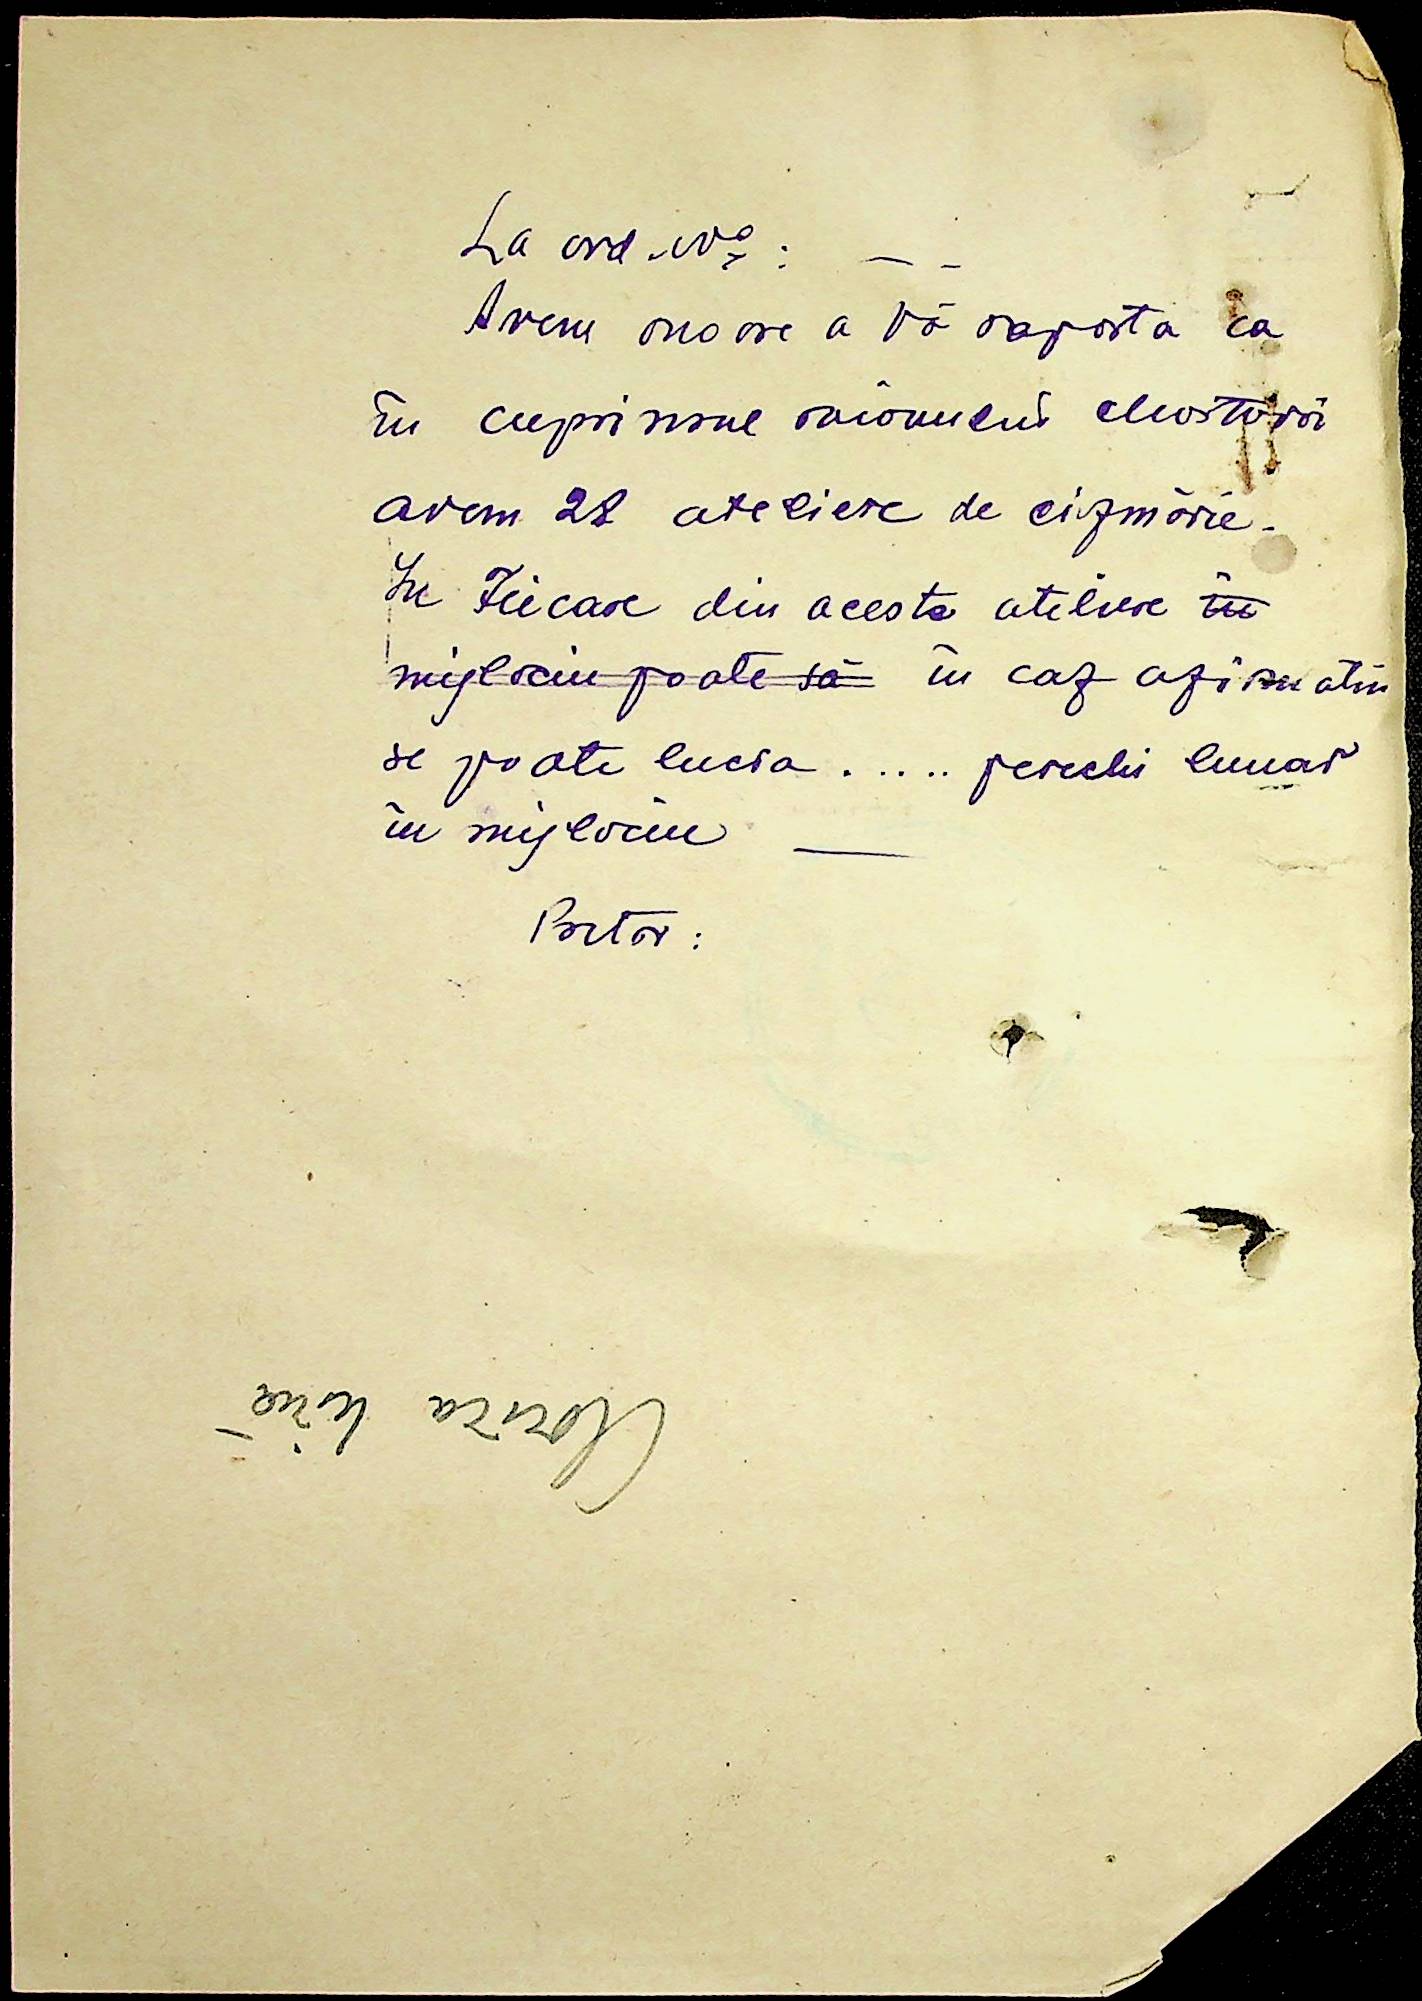 La ord. No:  — –
Avem onoare a Vă raporta ca
în cuprinsul raionului
avem 28 ateliere de cizmărie.
In Fiecare din aceste ateliere în
mijlociu poate să în caz afirmativ
se poate lucra ..... perechi lunar
în mijlociu —
Pretor: